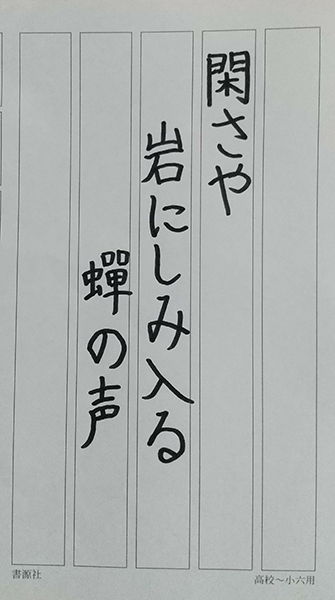 閑さや
岩にしみ入る
蟬の声
高校～小六用
書源社